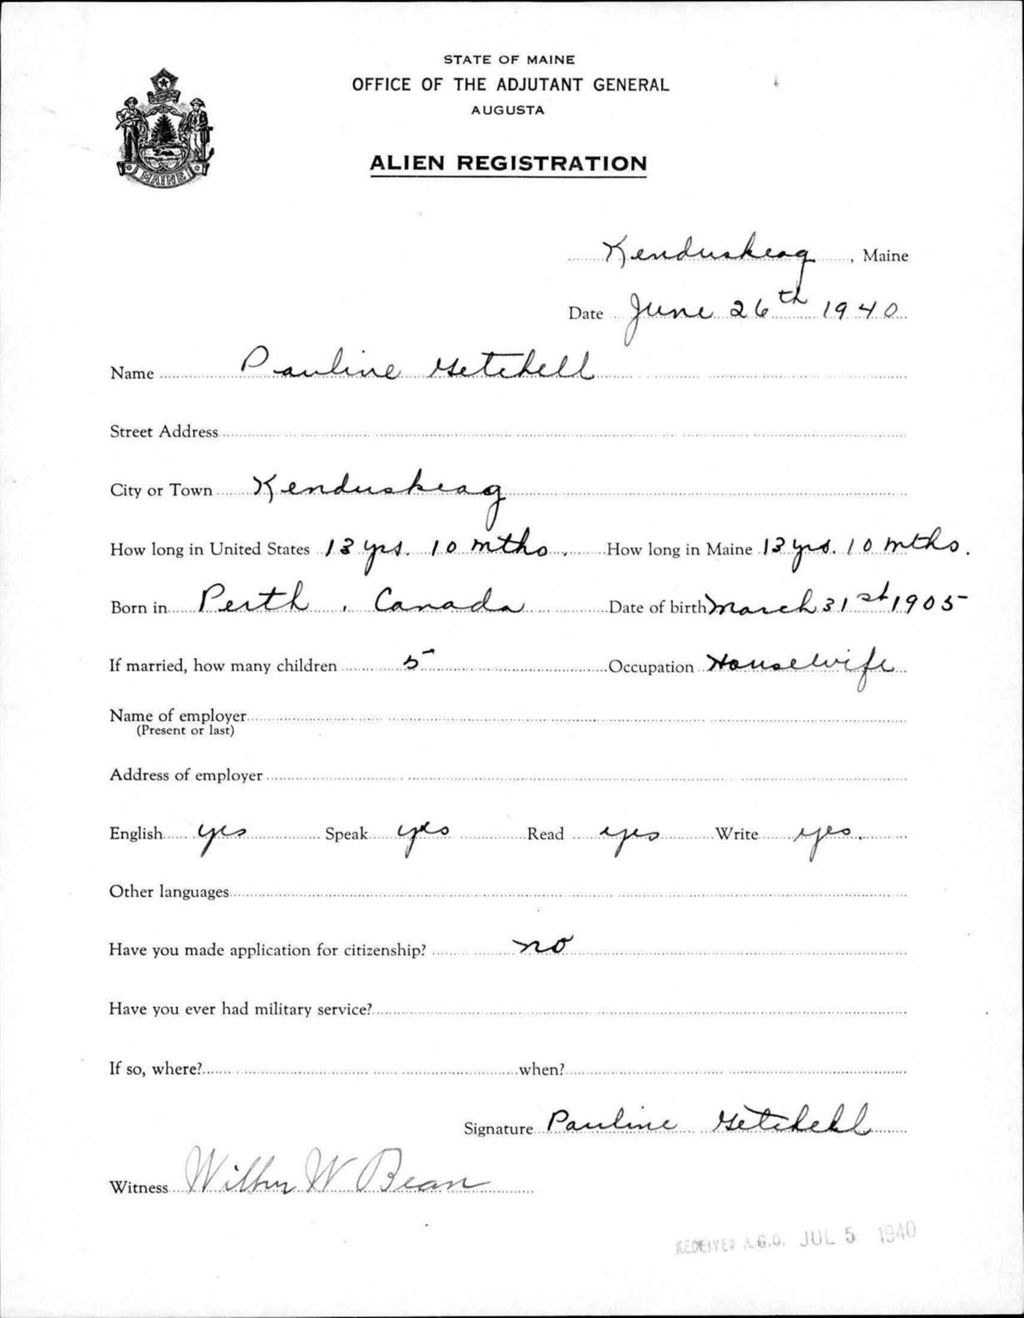 STATE OF MAINE
OFFICE OF THE ADJUTANT GENERAL
AUGUSTA
ALIEN REGISTRATION
MAINE
Kenduskeag, Maine
Date June 26th 1940
Name Pauline Getchell
Street Address
City or Town Kenduskeag
How long in United States 13 yrs. 10 mths. How long in Maine 13 yrs. 10 mths.
Born in Perth, Canada Date of birth March 31st 1905
If married, how many children 5 Occupation Housewife
Name of employer
(Present or last)
Address of employer
English yes Speak yes Read yes Write yes.
Other languages
Have you made application for citizenship? no
Have you ever had military service?
If so, where? when?
Signature Pauline Getchell
Witness Wilbur W Bean
RECEIVED A.G.O. JUL 5 1940